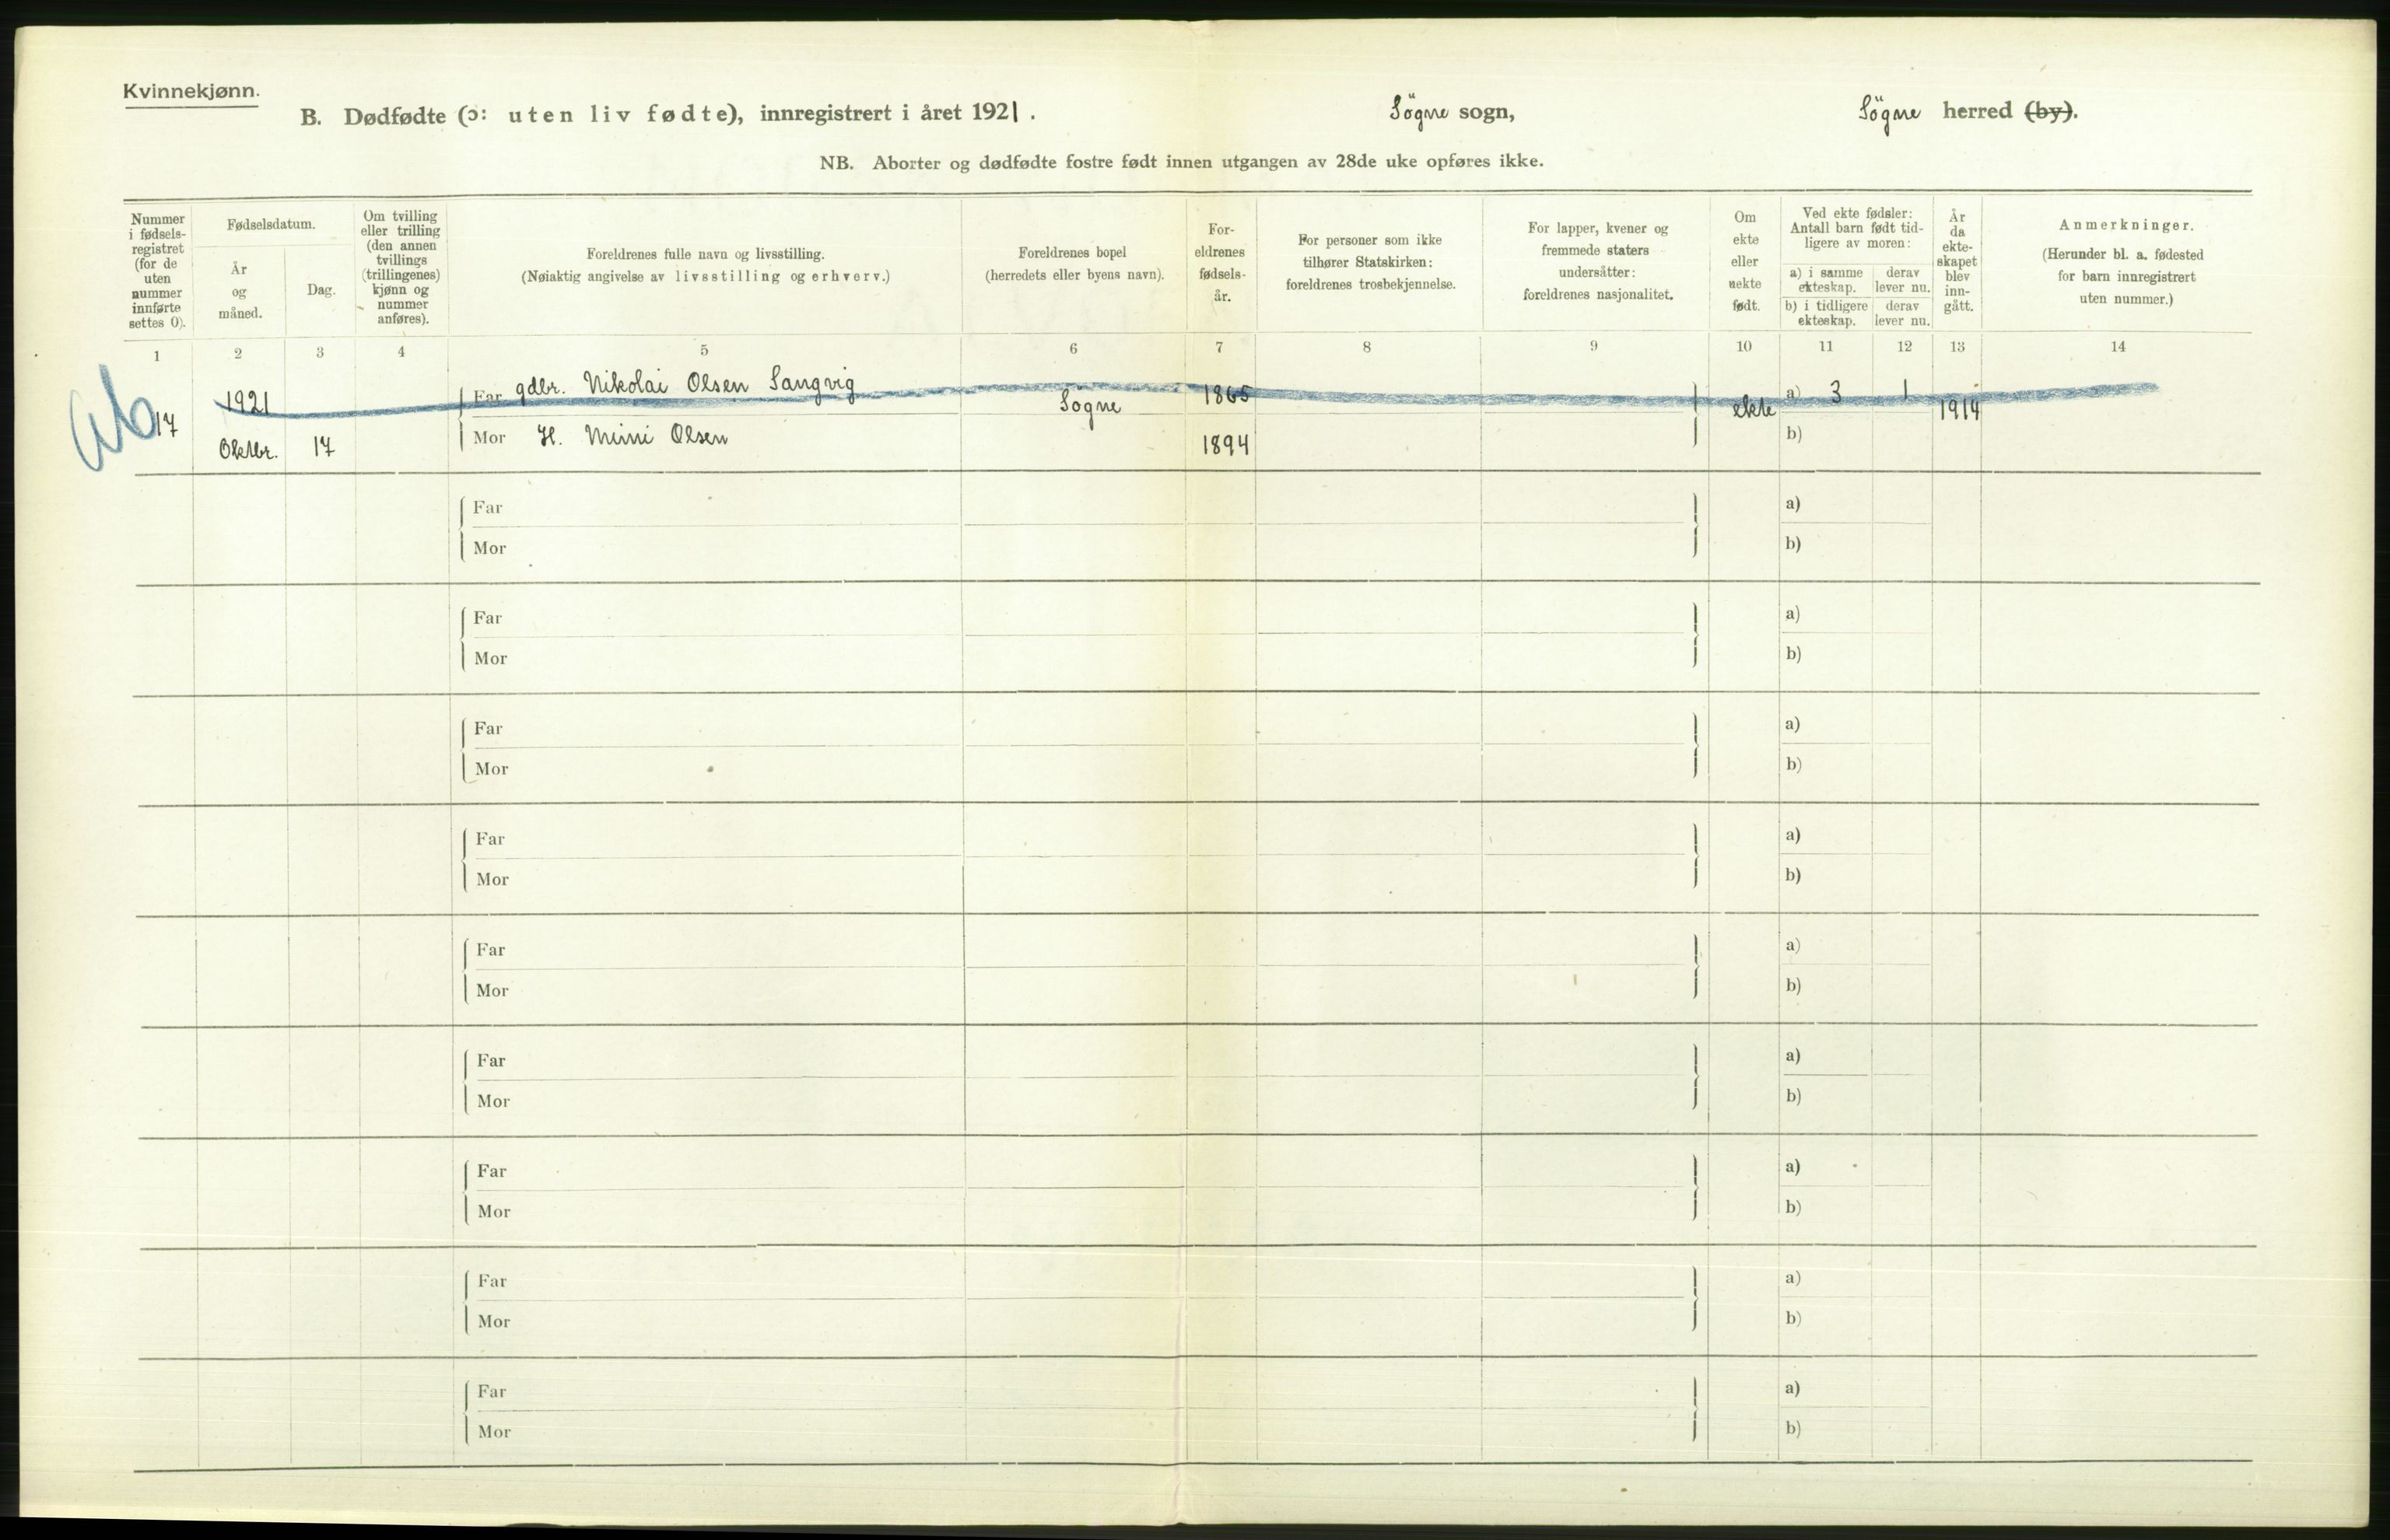 Kvinnekjønn.
B. Dødfødte (ɔ: uten liv fødte), innregistrert i året 1921. Søgne sogn, Søgne herred (by).
NB. Aborter og dødfødte fostre født innen utgangen av 28de uke opføres ikke.
Nummer i fødselsregistret (for de uten nummer innførte settes 0).
Fødselsdatum.
År og måned.
Dag.
Om tvilling eller trilling (den annen tvillings (trillingenes) kjønn og nummer anføres).
Foreldrenes fulle navn og livsstilling.
(Nøiaktig angivelse av livsstilling og erhverv.)
Foreldrenes bopel
(herredets eller byens navn).
Foreldrenes fødselsår.
For personer som ikke tilhører Statskirken: foreldrenes trosbekjennelse.
For lapper, kvener og fremmede staters undersåtter: foreldrenes nasjonalitet.
Om ekte eller uekte født.
Ved ekte fødsler: Antall barn født tidligere av moren:
a) i samme ekteskap. derav lever nu.
b) i tidligere ekteskap. derav lever nu.
År da ekteskapet blev inngått.
Anmerkninger.
(Herunder bl. a. fødested for barn innregistrert uten nummer.)
1 2 3 4 5 6 7 8 9 10 11 12 13 14
17 1921 Far gdbr. Nikolai Olsen Sangvig Søgne 1865 ekte a) 3 1 1914
Oktbr. 17 Mor H. Mimi Olsen 1894 b)
Far a)
Mor b)
Far a)
Mor b)
Far a)
Mor b)
Far a)
Mor b)
Far a)
Mor b)
Far a)
Mor b)
Far a)
Mor b)
Far a)
Mor b)
Far a)
Mor b)